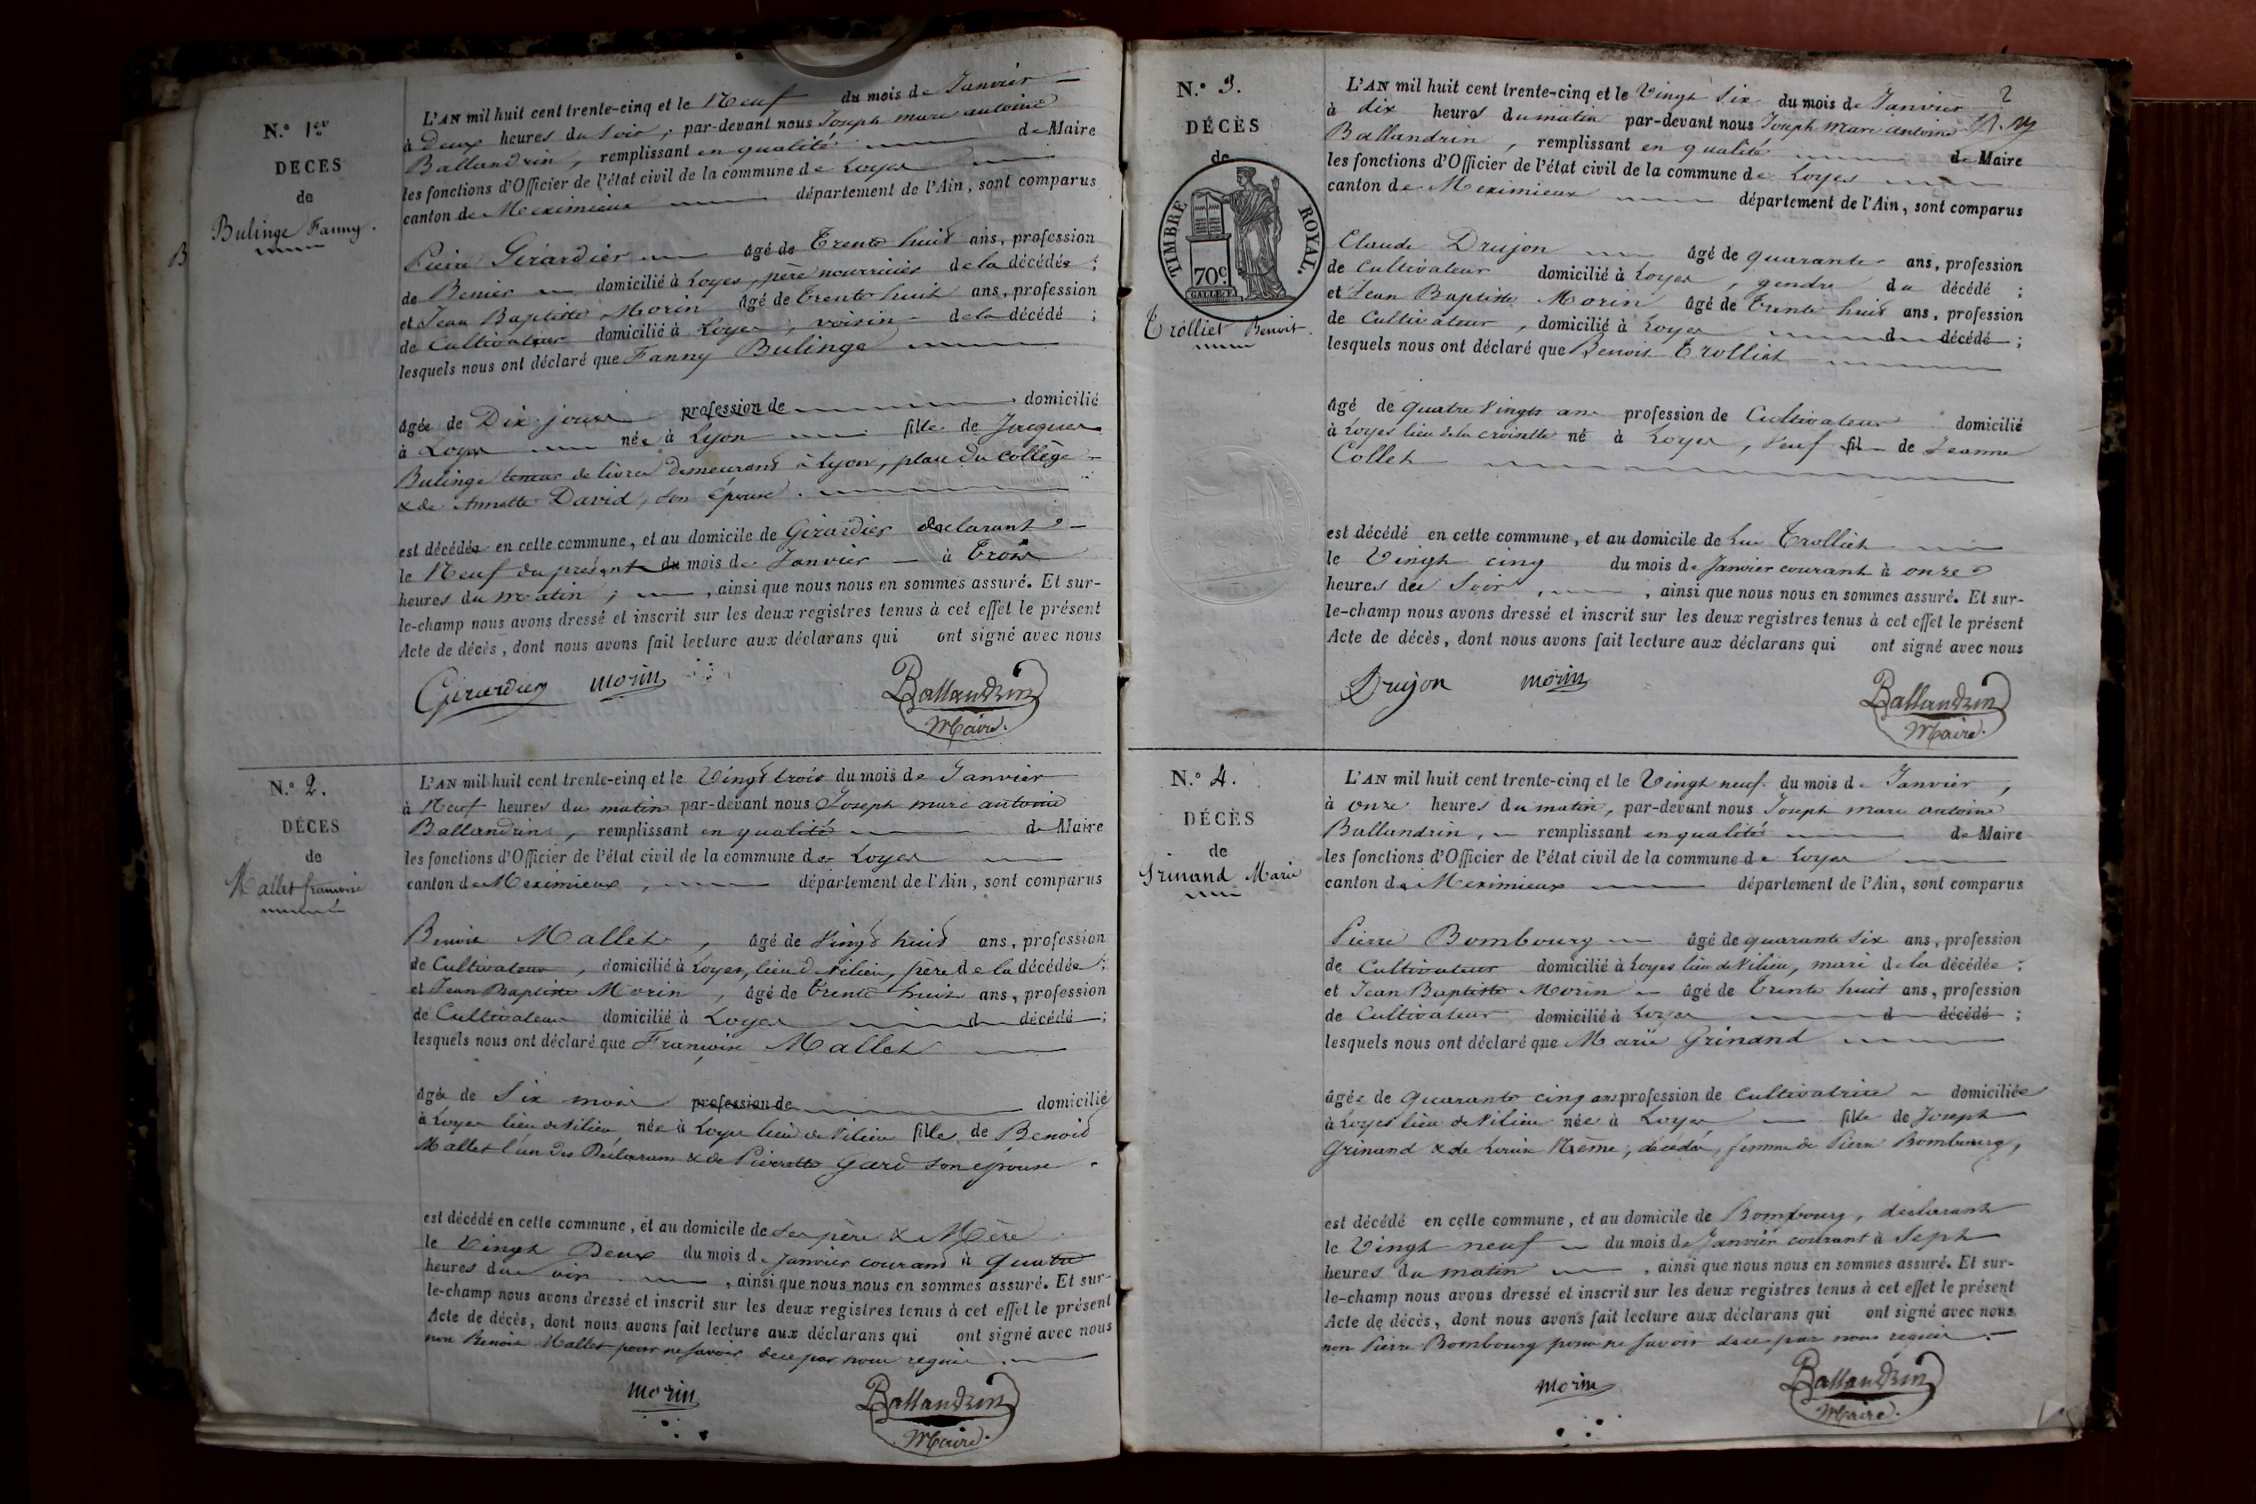 N.° 1er
DÉCÈS
de
Bulinge Fanny.
B
L'AN mil huit cent trente-cinq et le Neuf du mois de Janvier
à Deux heures du soir, par-devant nous Joseph marc antoine
Ballandrin, remplissant en qualité de Maire
les fonctions d'Officier de l'état civil de la commune de Loyes
canton de Meximieux département de l'Ain, sont comparus
Pierre Girardier âgé de Trente huit ans, profession
de domicilié à Loyes, père nourricier de la décédée ;
et Jean Baptiste Morin âgé de Trente huit ans, profession
de Cultivateur domicilié à Loyes, voisin de la décédé ;
lesquels nous ont déclaré que Fanny Bulinge
âgée de Dix jours profession de domicilié
à Loyes née à Lyon fille de Jacques
Bulinge teneur de livres demeurant à Lyon, place du Collège
& de Annette David, son épouse.
est décédée en cette commune, et au domicile de Girardier déclarant
le Neuf du présent du mois de Janvier à Trois
heures du matin, , ainsi que nous nous en sommes assuré. Et sur-
le-champ nous avons dressé et inscrit sur les deux registres tenus à cet effet le présent
Acte de décès, dont nous avons fait lecture aux déclarans qui ont signé avec nous
Girardier morin Ballandrin
Maire.
N.° 2.
DÉCÈS
de
Mallet francoise
L'AN mil huit cent trente-cinq et le Vingt trois du mois de Janvier
à Neuf heures du matin par-devant nous Joseph marc antoine
Ballandrin, remplissant en qualité de Maire
les fonctions d'Officier de l'état civil de la commune de Loyes
canton de Meximieux, département de l'Ain, sont comparus
Benoit Mallet, âgé de Vingt huit ans, profession
de Cultivateur, domicilié à Loyes, lieu d Vilieu, père de la décédée ;
et Jean Baptiste Morin, âgé de Trente huit ans, profession
de Cultivateur domicilié à Loyes d décédé ;
lesquels nous ont déclaré que Francoise Mallet
âgée de Six mois profession de domicilié
à Loyes lieu de Vilieu née à Loyes lieu de Vilieu fille de Benoit
Mallet l'un des Déclarans & de Pierrette Gard son épouse.
est décédé en cette commune, et au domicile de ses père & Mère
le Vingt Deux du mois de Janvier courant à quatre
heures du soir , ainsi que nous nous en sommes assuré. Et sur-
le-champ nous avons dressé et inscrit sur les deux registres tenus à cet effet le présent
Acte de décès, dont nous avons fait lecture aux déclarans qui ont signé avec nous
non Benoit Mallet pour ne savoir de ce par nous requis.
morin Ballandrin
Maire.
2
N.° 3.
DÉCÈS
de
TIMBRE ROYAL.
70c.
Trolliet Benoit.
L'AN mil huit cent trente-cinq et le Vingt Six du mois de Janvier
à dix heures du matin par-devant nous Joseph Marc antoine
Ballandrin, remplissant en qualité de Maire
les fonctions d'Officier de l'état civil de la commune de Loyes
canton de Meximieux département de l'Ain, sont comparus
Claude Drujon âgé de quarante ans, profession
de Cultivateur domicilié à Loyes, gendre du décédé ;
et Jean Baptiste Morin âgé de Trente huit ans, profession
de Cultivateur, domicilié à Loyes d décédé ;
lesquels nous ont déclaré que Benoit Trolliet
âgé de quatre Vingts ans profession de Cultivateur domicilié
à Loyes lieu de la croisette né à Loyes, Veuf fil de Jeanne
Collet
est décédé en cette commune, et au domicile de Luc Trolliet
le Vingt cinq du mois de Janvier courant à onze
heures du Soir, , ainsi que nous nous en sommes assuré. Et sur-
le-champ nous avons dressé et inscrit sur les deux registres tenus à cet effet le présent
Acte de décès, dont nous avons fait lecture aux déclarans qui ont signé avec nous
Drujon morin Ballandrin
Maire.
N.° 4.
DÉCÈS
de
Grinand Marie
L'AN mil huit cent trente-cinq et le Vingt neuf du mois de Janvier,
à onze heures du matin, par-devant nous Joseph marc antoine
Ballandrin, remplissant en qualité de Maire
les fonctions d'Officier de l'état civil de la commune de Loyes
canton de Meximieux département de l'Ain, sont comparus
Pierre Bombourg âgé de quarante six ans, profession
de Cultivateur domicilié à Loyes lieu de Vilieu, mari de la décédée ;
et Jean Baptiste Morin âgé de Trente huit ans, profession
de Cultivateur domicilié à Loyes d décédé ;
lesquels nous ont déclaré que Marie Grinand
âgée de quarante cinq ans profession de Cultivatrice domiciliée
à Loyes lieu de Vilieu née à Loyes fille de Joseph
Grinand & de décédés, femme de Pierre Bombourg,
est décédé en cette commune, et au domicile de Bombourg, déclarant
le Vingt neuf du mois de Janvier courant à Sept
heures du matin , ainsi que nous nous en sommes assuré. Et sur-
le-champ nous avons dressé et inscrit sur les deux registres tenus à cet effet le présent
Acte de décès, dont nous avons fait lecture aux déclarans qui ont signé avec nous
non Pierre Bombourg pour ne savoir de ce par nous requis.
morin Ballandrin
Maire.